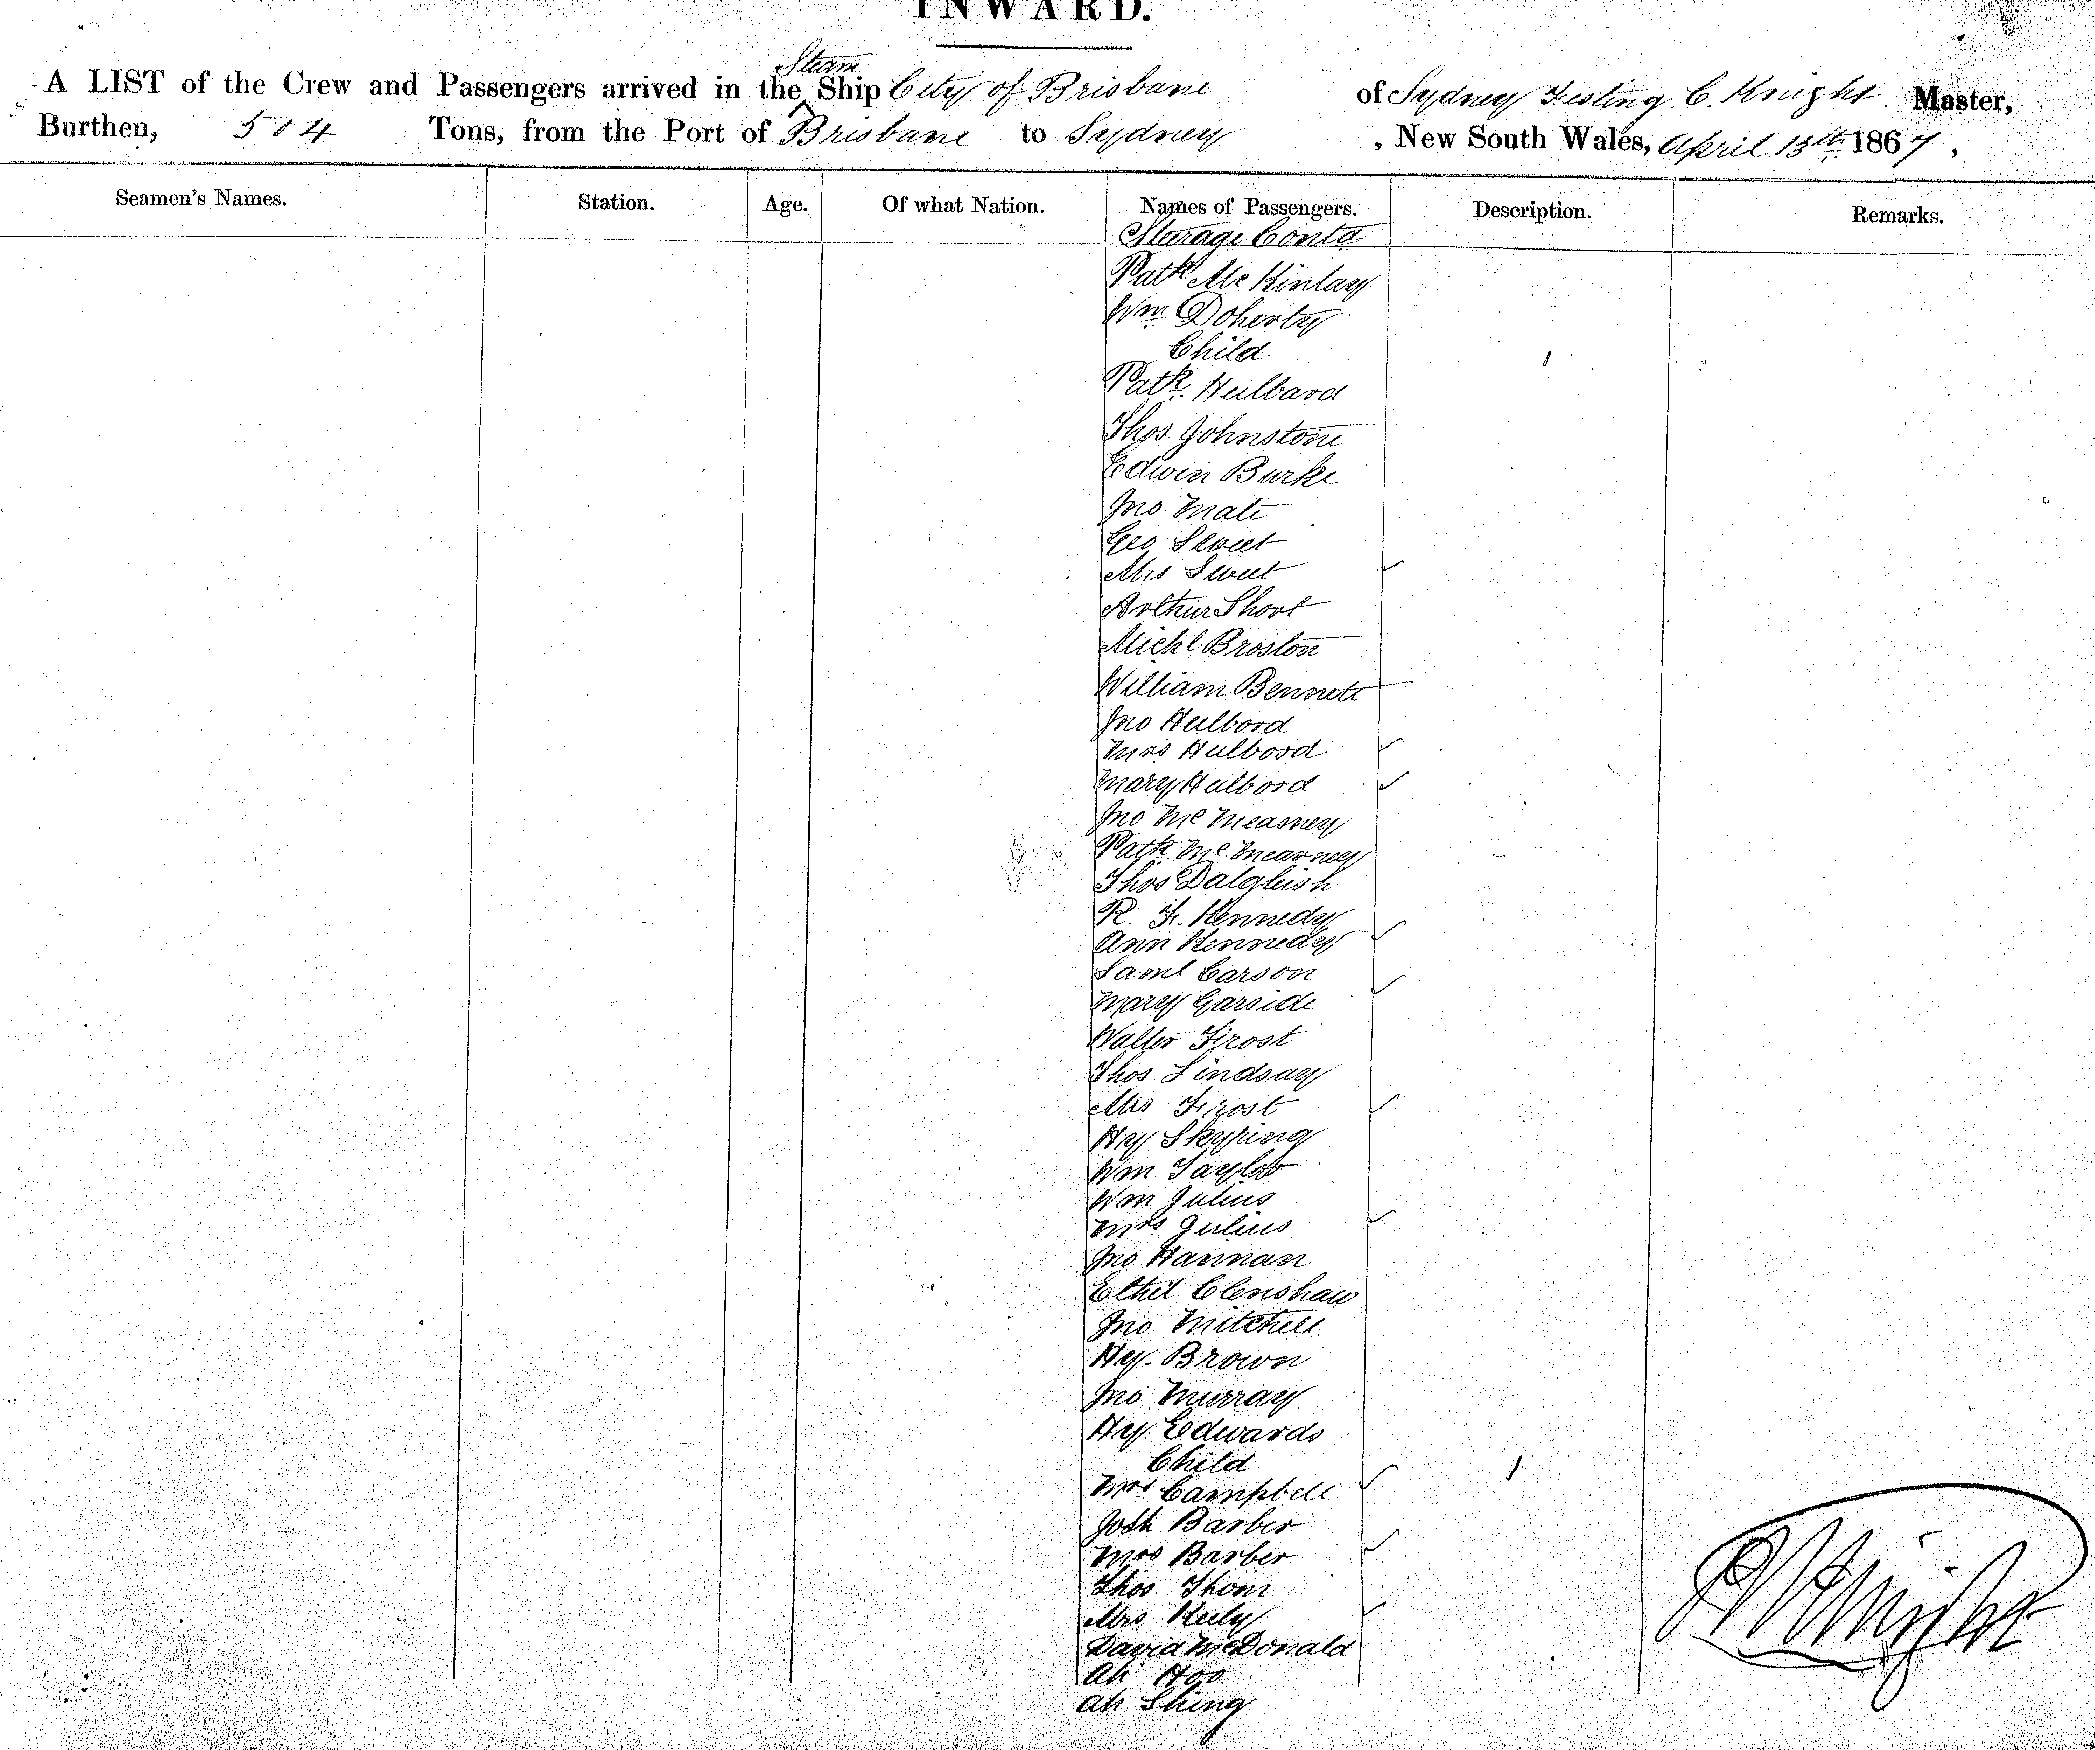 INWARD.
A LIST of the Crew and Passengers arrived in the Steam Ship City of Brisbane of Sydney Festing C. Knight Master,
Burthen, 504 Tons, from the Port of Brisbane to Sydney , New South Wales, April 13th 1867,
Seamen's Names. Station. Age. Of what Nation. Names of Passengers. Description. Remarks.
Starage Contd
Patk McKinlay
Wm Doherty
Child 1
Patk. Hulbard
Thos Johnstone
Edwin Burke
Jno Mate
Geo Sweet
Mrs Sweet
Arthur Short
Michl Broston
William Bennett
Jno Hulbord
Mrs Hulbord
Mary Hulbord
Jno McMearney
Patk McMearney
Thos Dalgleish
R. F. Kennedy
Ann Kennedy
Saml Carson
Mary Garside
Walter Frost
Thos Lindsay
Mrs Frost
Hy Skyring
Wm Taylor
Wm Julius
Mrs Julius
Jno Hannan
Ethel Clenshaw
Jno Mitchell
Hy. Brown
Jno Murray
Hy. Edwards
Child 1
Mrs Campbell
Josh Barber
Mrs Barber
Thos Thom
Mrs Kiely
David McDonald
Ah Hoo
Ah Shing
Knight